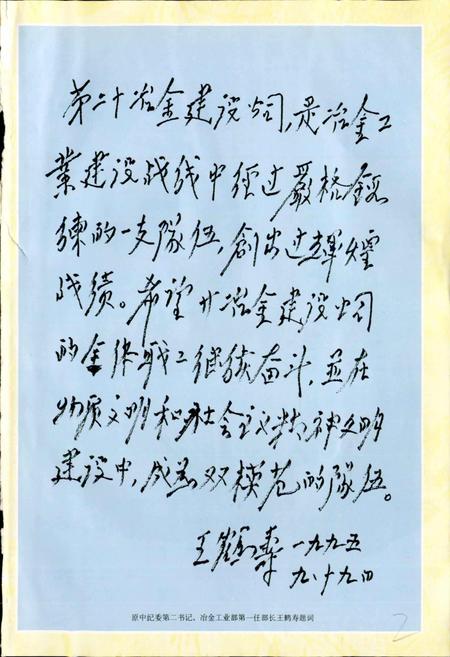 第二十冶金建设公司,是冶金工
业建设战线中经过嚴格鍛
练的一支隊伍,創出过辉煌
战绩。希望廿冶金建设公司
的全体职工继续奋斗,並在
物质文明和社会主义精神文明
建设中,成为双模范的隊伍。
王鹤寿 一九九五
九·十九日
原中纪委第二书记、冶金工业部第一任部长王鹤寿题词
2